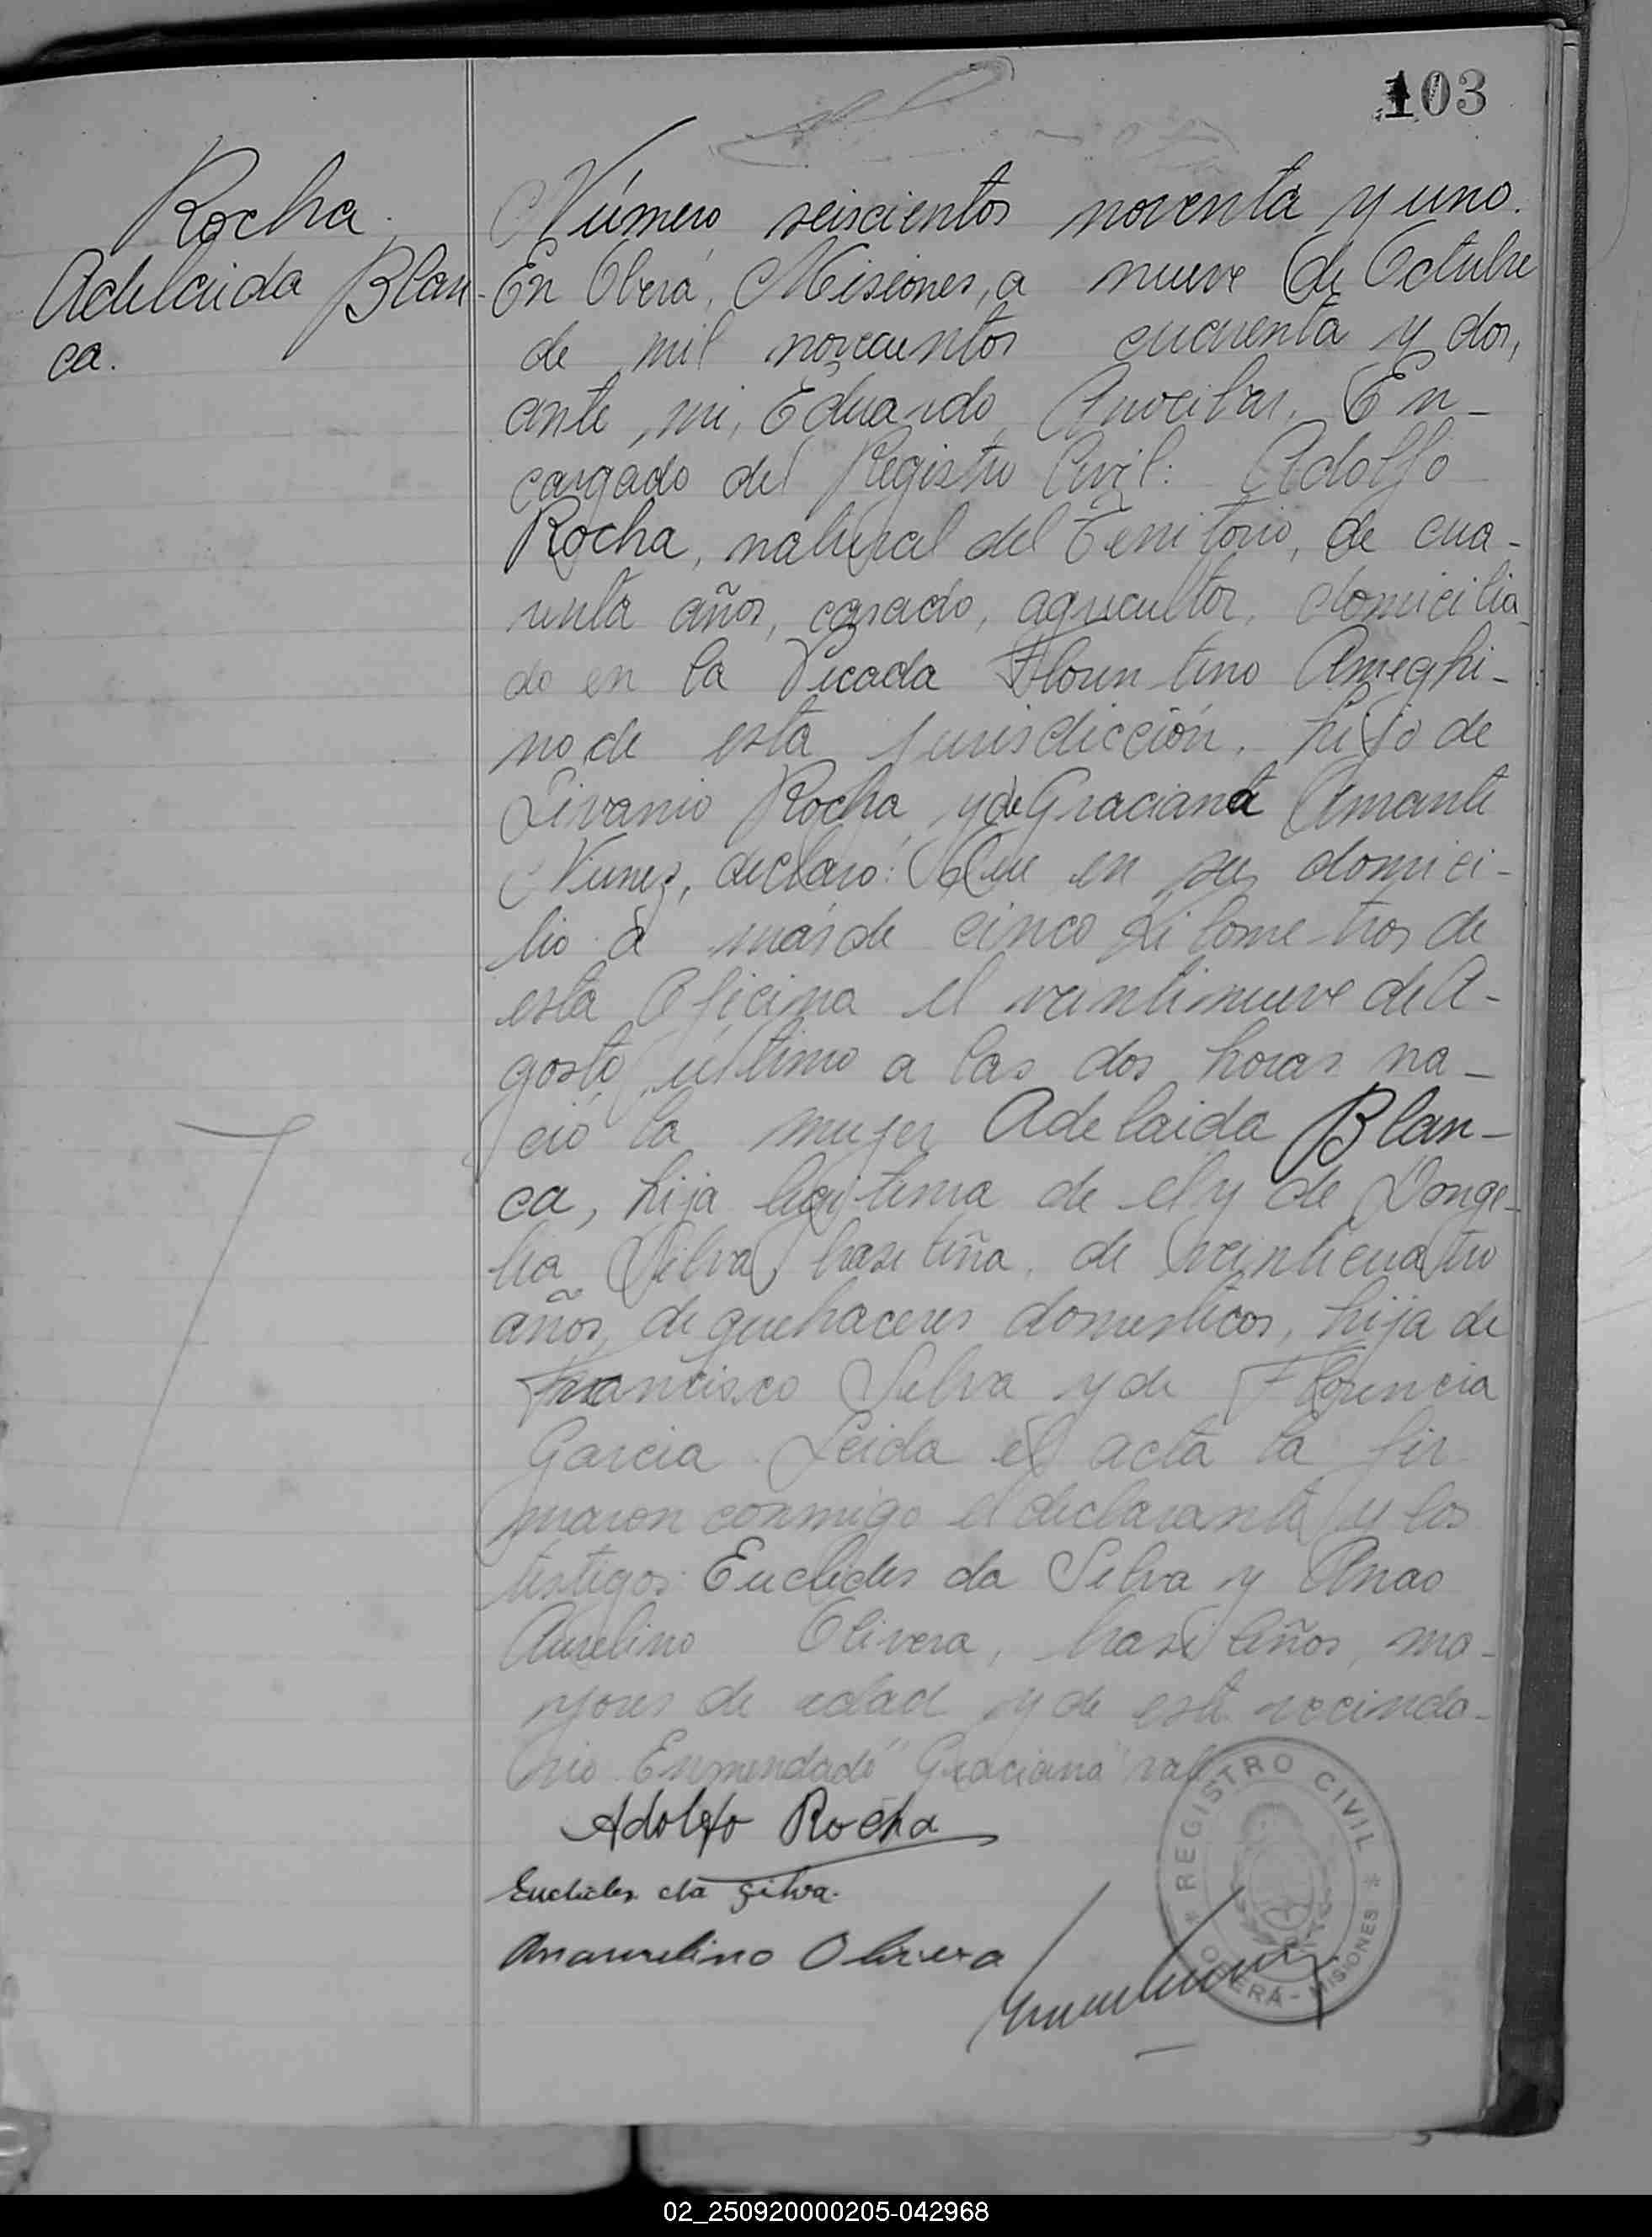 103
Rocha
Adelaida Blan-
ca.
Número seiscientos noventa y uno.
En Oberá, Misiones, a nueve de Octubre
de mil novecientos cuarenta y dos,
ante mi, Eduardo Encargado
cargado del Registro Civil: Adolfo
Rocha, natural del Territorio, de cua-
renta años, casado, agricultor, domicilia-
do en la Picada Florentino Ameghi-
no de esta jurisdicción, hijo de
Livanio Rocha y de Graciana Amante
Nunez, declaró: Que en su domici-
lio a más de cinco kilometros de
esta Oficina el veintinueve de A-
gosto último a las dos horas na-
ció la mujer Adelaida Blan-
ca, hija legitima de el y de Donge-
lia Silva, brasileña, de veinticuatro
años, de quehaceres domesticos, hija de
Francisco Silva y de Florencia
Garcia. Leida el acta la fir
maron conmigo el declarante y los
testigos Euclides da Silva y Anao
Aurelino Olivera, brasileños, ma-
yores de edad y de este vecinda-
rio. Enmendado "Graciana" vale
Adolfo Rocha
Euclides da Silva.
Anaurelino Olivera
* REGISTRO CIVIL *
OBERÁ - MISIONES
02_250920000205-042968